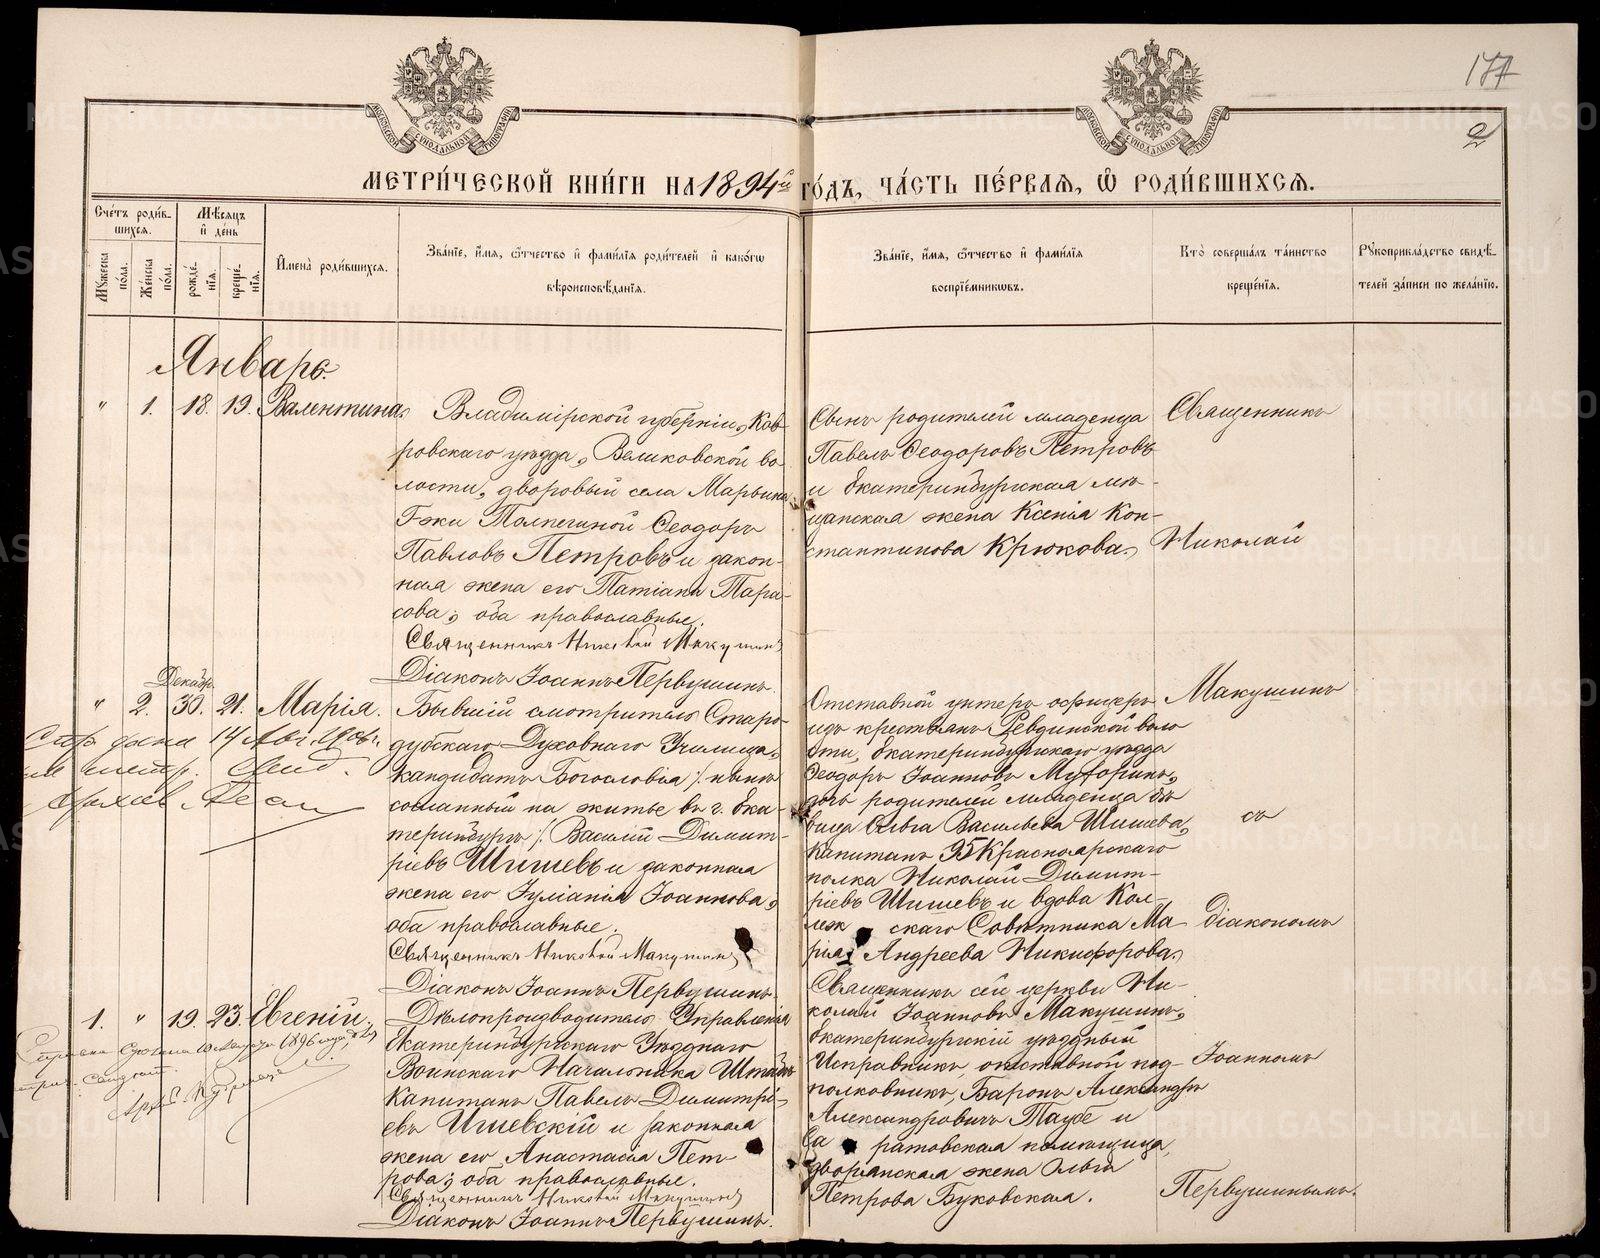 177
2
МОСКОВСКОЙ СУНОДАЛЬНОЙ ТИПОГРАФІИ
МОСКОВСКОЙ СУНОДАЛЬНОЙ ТИПОГРАФІИ
МЕТРИ́ЧЕСКОЙ КНИ́ГИ НА 1894й ГО́ДЪ, ЧА́СТЬ ПЕ́РВАЯ, Ѽ РОДИ́ВШИХСЯ.
Сче́тъ роди́вшихся.
Мѣ́сяцъ и҆ де́нь
Мꙋ́жеска по́ла.
Же́нска по́ла.
рожде́нїя.
креще́нїя.
И҆мена̀ роди́вшихся.
Зва́нїе, и҆́мя, ѻ҆́тчество и҆ фами́лїя роди́телей и҆ како́гѡ
вѣроисповѣ́данїя.
Зва́нїе, и҆́мя, ѻ҆́тчество и҆ фами́лїя
воспрїе́мникѡвъ.
Кто̀ соверша́лъ та́инство
креще́нїя.
Рꙋкоприкла́дство свидѣ́-
телей за́писи по жела́нїю.
Январь.
" 1. 18. 19. Валентина.
Владимірской губерніи, Ков-
ровскаго уѣзда, Великовской во-
лости, дворовый села Марьина
Г-жи Толпегиной Ѳеодоръ
Павловъ Петровъ и закон-
ная жена его Татіана Тара-
сова; оба православные.
Священникъ Николай Макушинъ
Діаконъ Іоаннъ Первушинъ.
Сынъ родителей младенца
Павелъ Ѳеодоровъ Петровъ
и Екатеринбургская мѣ-
щанская жена Ксенія Кон-
стантинова Крюкова.
Священникъ
Николай
Декабр.
" 2. 30. 21. Марія.
Бывшій смотритель Старо-
дубскаго Духовнаго Училища,
кандидатъ Богословія /: нынѣ
сосланный на житье въ г. Ека-
теринбургъ :/ Василій Димит-
ріевъ Шишевъ и законная
жена его Іуліанія Іоаннова,
оба православные.
Священникъ Николай Макушинъ
Діаконъ Іоаннъ Первушинъ.
дана 14 Авг.
Отставной унтеръ офицеръ
изъ крестьянъ Ревдинской воло
сти, Екатеринбургскаго уѣзда
Ѳеодоръ Іоанновъ
дочь родителей младенца дѣ
вица Ольга Васильева Шишева,
Капитанъ 95 Красноярскаго
полка Николай Димит-
ріевъ Шишевъ и вдова Кол-
леж скаго Совѣтника Ма-
рія Андреева Никифорова.
Макушинъ
съ
діакономъ
1. " 19. 23. Евгеній.
Дѣлопроизводитель Управленія
Екатеринбургскаго Уѣзднаго
Воинскаго Начальника Штабсъ
Капитанъ Павелъ Димитрі-
евъ Ишевскій и законная
жена его Анастасія Пет-
рова; оба православные.
Священникъ Николай Макушинъ
Діаконъ Іоаннъ Первушинъ.
Священникъ сей церкви Ни-
колай Іоанновъ Макушинъ,
Екатеринбургскій уѣздный
Исправникъ, отставной под-
полковникъ, Баронъ Александръ
Александровичъ Таубе и
Са ратовская помѣщица,
дворянская жена Ольга
Петрова Буковская.
Іоанномъ
Первушинымъ.
METRIKI.GASO-URAL.RU